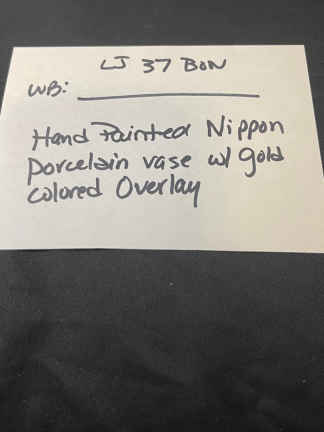 LJ 37 BON
WB:
Hand Painted Nippon
Porcelain vase w/ gold
Colored Overlay